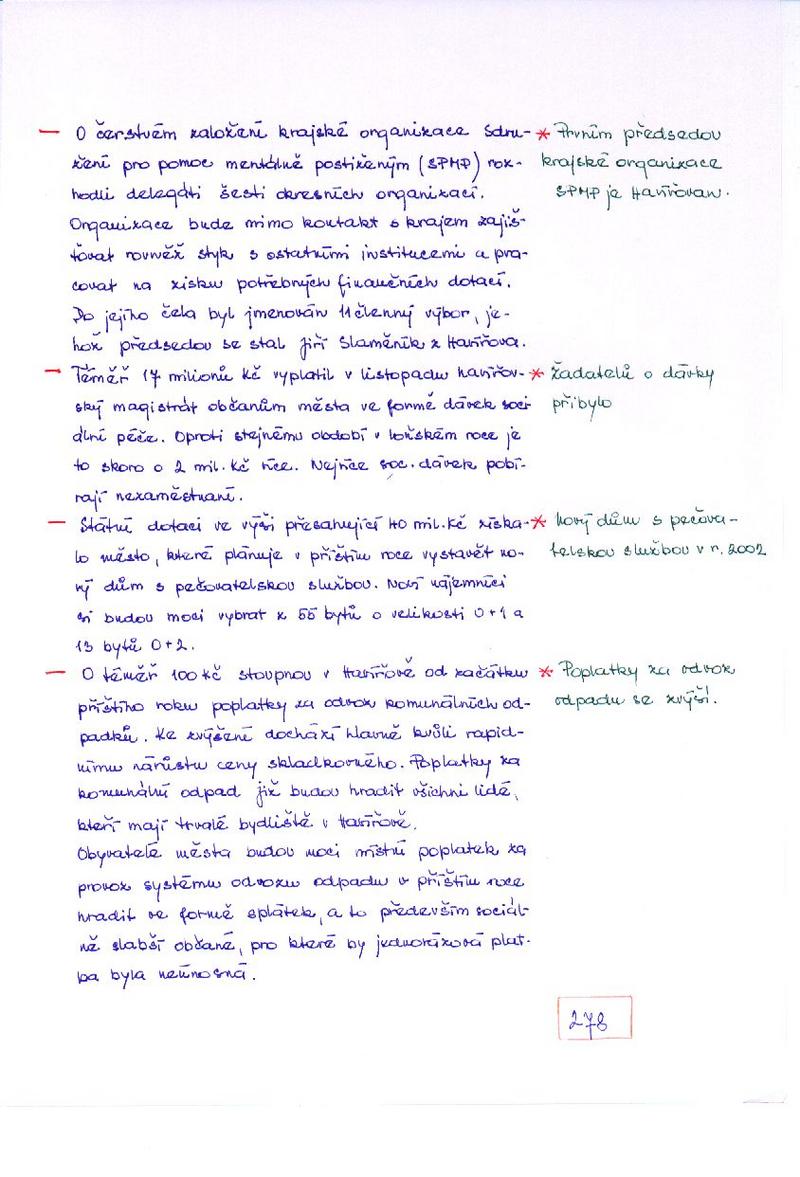 – O čerstvém založení krajské organizace Sdru-
žení pro pomoc mentálně postiženým (SPMP) roz-
hodli delegáti šesti okresních organizací.
Organizace bude mimo kontakt s krajem zajiš-
ťovat rovněž styk s ostatními institucemi a pra-
covat na zisku potřebných finančních dotací.
Do jejího čela byl jmenován 11členný výbor, je-
hož předsedou se stal Jiří Slaměník z Havířova.
* Prvním předsedou
krajské organizace
SPMP je Havířovan.
– Téměř 17 milionů Kč vyplatil v listopadu havířov-
ský magistrát občanům města ve formě dávek soci
ální péče. Oproti stejnému období v loňském roce je
to skoro o 2 mil. Kč více. Nejvíce soc. dávek pobí-
rají nezaměstnaní.
* Žadatelů o dávky
přibylo
– Státní dotaci ve výši přesahující 40 mil. Kč získa-
lo město, které plánuje v příštím roce vystavět no-
vý dům s pečovatelskou službou. Noví nájemníci
si budou moci vybrat z 55 bytů o velikosti 0+1 a
13 bytů 0+2.
* Nový dům s pečova-
telskou službou v r. 2002
– O téměř 100 Kč stoupnou v Havířově od začátku
příštího roku poplatky za odvoz komunálních od-
padků. Ke zvýšení dochází hlavně kvůli rapid-
nímu nárůstu ceny skládkovného. Poplatky za
komunální odpad již budou hradit všichni lidé,
kteří mají trvalé bydliště v Havířově.
Obyvatelé města budou moci místní poplatek za
provoz systému odvozu odpadu v příštím roce
hradit ve formě splátek, a to především sociál-
ně slabší občané, pro které by jednorázová plat-
ba byla neúnosná.
* Poplatky za odvoz
odpadu se zvýší.
278